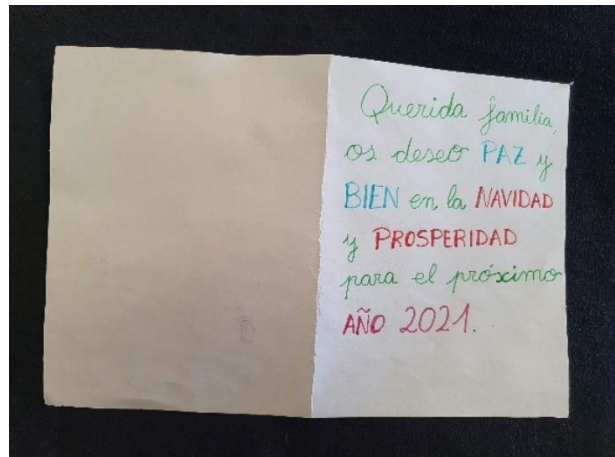 Querida familia,
os deseo PAZ y
BIEN en la NAVIDAD
y PROSPERIDAD
para el próximo
AÑO 2021.